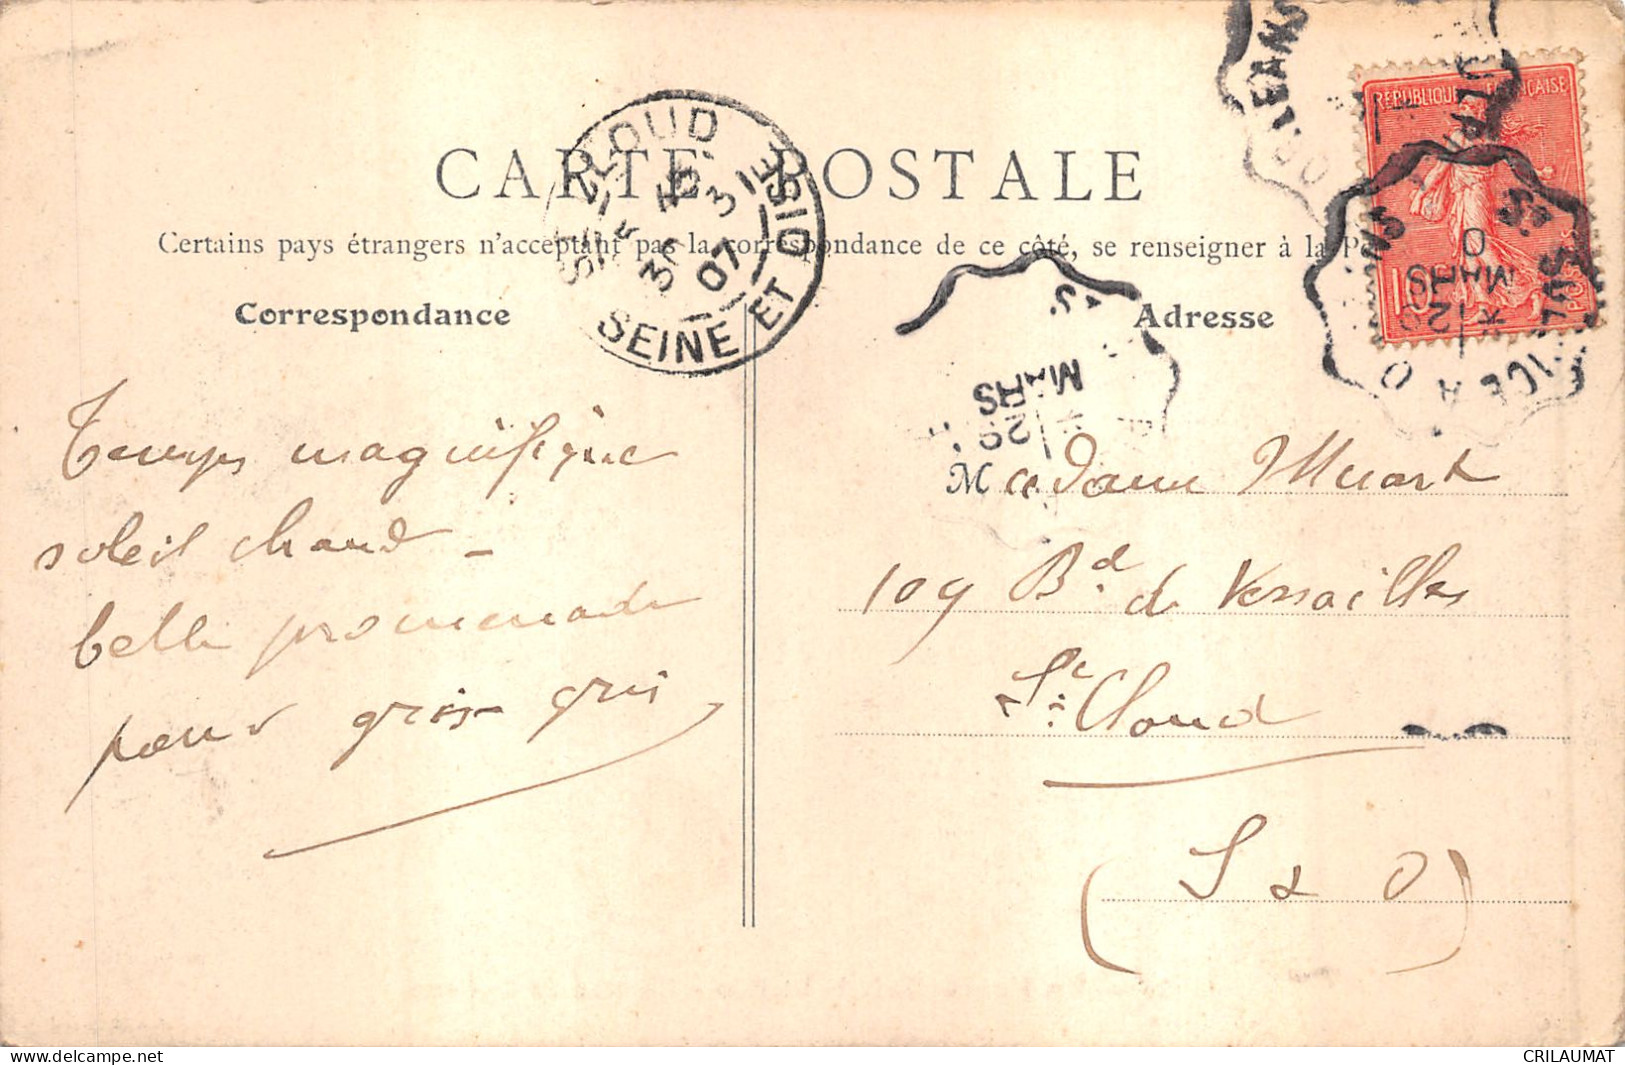 CARTE POSTALE
Certains pays étrangers n'acceptent pas la correspondance de ce côté, se renseigner à la
Correspondance
Adresse
ST CLOUD
SEINE ET OISE
3
07
RÉPUBLIQUE FRANÇAISE
10
POSTES
MARS
MARS
29
Temps magnifique
soleil chaud -
belle promenade
pour gris-gris
Madame
109 Bd. de Versailles
St. Cloud
(S & O)
CRILAUMAT